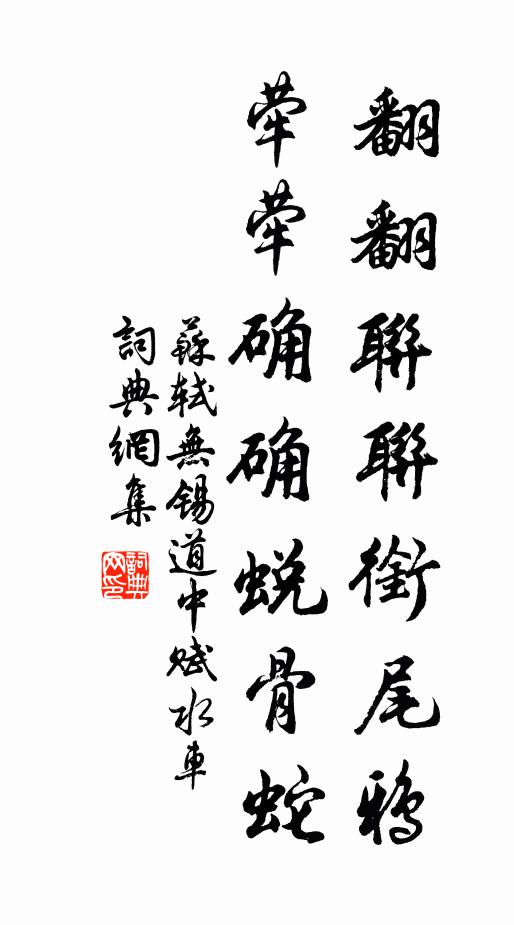 翻翻聯聯銜尾鴉
犖犖确确蜕骨蛇
蘇轼無锡道中赋水車
詞典網集
詞典网印